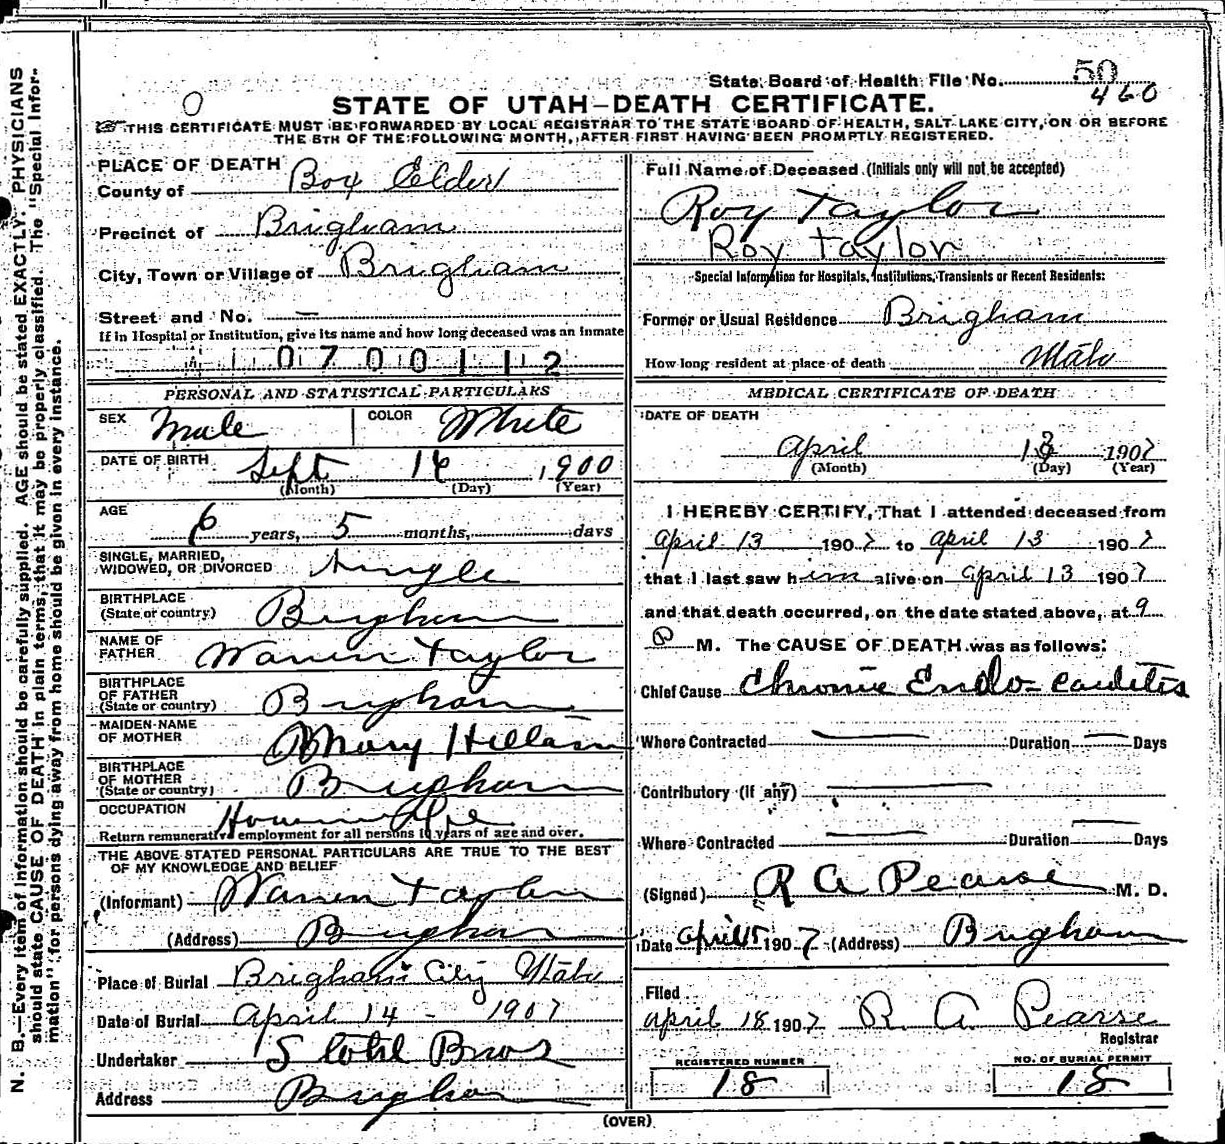 State Board of Health File No. 50
460
0
STATE OF UTAH—DEATH CERTIFICATE.
THIS CERTIFICATE MUST BE FORWARDED BY LOCAL REGISTRAR TO THE STATE BOARD OF HEALTH, SALT LAKE CITY, ON OR BEFORE
THE 5TH OF THE FOLLOWING MONTH, AFTER FIRST HAVING BEEN PROMPTLY REGISTERED.
N. B.—Every item of information should be carefully supplied. AGE should be stated EXACTLY. PHYSICIANS
should state CAUSE OF DEATH in plain terms, that it may be properly classified. The "Special Infor-
mation" for persons dying away from home should be given in every instance.
PLACE OF DEATH
County of Box Elder
Precinct of Brigham
City, Town or Village of Brigham
Street and No. —
If in Hospital or Institution, give its name and how long deceased was an inmate
0700112
PERSONAL AND STATISTICAL PARTICULARS
SEX Male COLOR White
DATE OF BIRTH Sept 16 1900
(Month) (Day) (Year)
AGE
6 years, 5 months, days
SINGLE, MARRIED,
WIDOWED, OR DIVORCED Single
BIRTHPLACE
(State or country) Brigham
NAME OF
FATHER Warren Taylor
BIRTHPLACE
OF FATHER
(State or country) Brigham
MAIDEN NAME
OF MOTHER Mary Hillam
BIRTHPLACE
OF MOTHER
(State or country) Brigham
OCCUPATION
Return remunerative employment for all persons 10 years of age and over.
THE ABOVE STATED PERSONAL PARTICULARS ARE TRUE TO THE BEST
OF MY KNOWLEDGE AND BELIEF
(Informant) Warren Taylor
(Address) Brigham
Place of Burial Brigham City Utah
Date of Burial April 14 - 1907
Undertaker Bros
Address Brigham
Full Name of Deceased (Initials only will not be accepted)
Roy Taylor
Roy taylor
Special Information for Hospitals, Institutions, Transients or Recent Residents:
Former or Usual Residence Brigham
How long resident at place of death Utah
MEDICAL CERTIFICATE OF DEATH
DATE OF DEATH
April 13 1907
(Month) (Day) (Year)
I HEREBY CERTIFY, That I attended deceased from
April 13 1907 to April 13 1907
that I last saw him alive on April 13 1907
and that death occurred, on the date stated above, at 9
P M. The CAUSE OF DEATH was as follows:
Chief Cause Chronic Endo-carditis
Where Contracted — Duration — Days
Contributory (if any) —
Where Contracted — Duration — Days
(Signed) R A Pearse M. D.
Date April 15 1907 (Address) Brigham
Filed
April 18 1907 R. A. Pearse
Registrar
REGISTERED NUMBER NO. OF BURIAL PERMIT
18 18
(OVER)